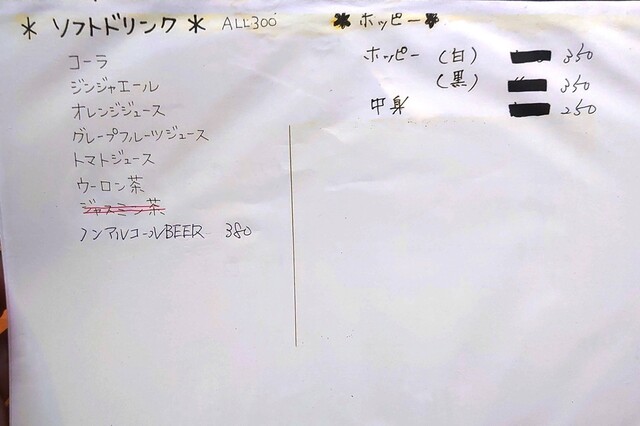 * ソフトドリンク * ALL300
コーラ
ジンジャエール
オレンジジュース
グレープフルーツジュース
トマトジュース
ウーロン茶
ジャスミン茶
ノンアルコールBEER 380
* ホッピー *
ホッピー (白) 350
(黒) 350
中身 250